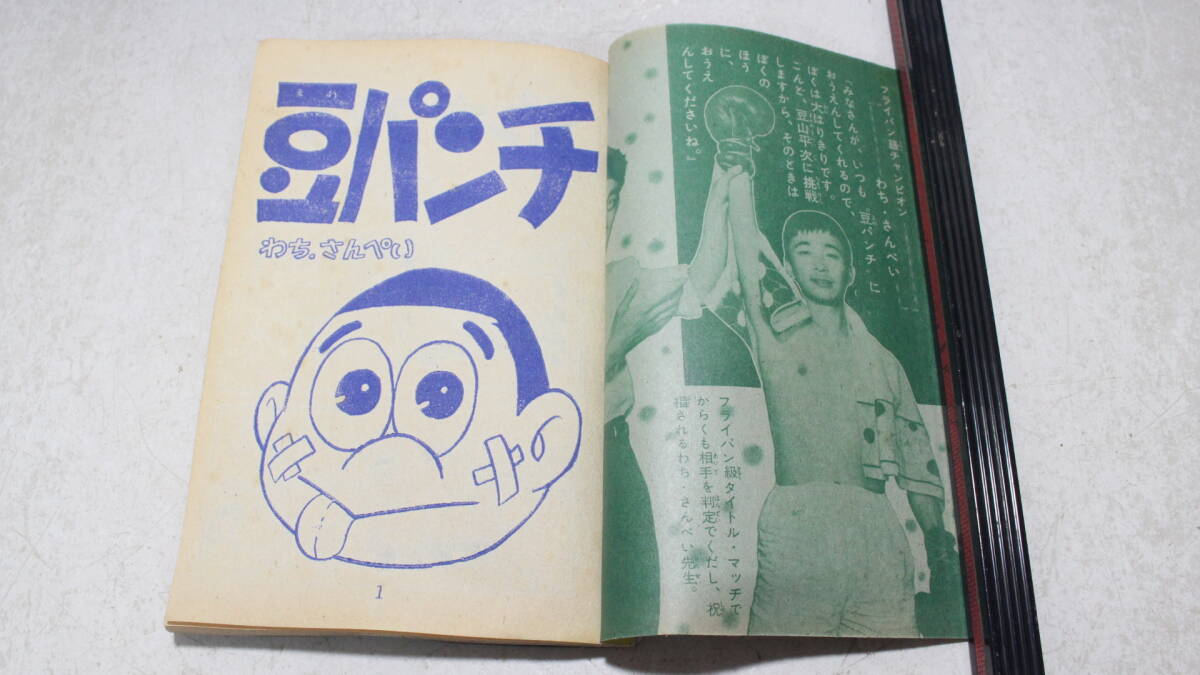 フライパン級チャンピオン
わち・さんぺい
「みなさんが、いつも“豆パンチ”に
おうえんしてくれるので、
ぼくは大はりきりです。
こんど、豆山平次に挑戦
しますから、そのときは
ぼくの
ほう
に、
おうえ
んしてくださいね。」
フライパン級タイトル・マッチで
からくも相手を判定でくだし、祝
福されるわち・さんぺい先生。
まめ
豆パンチ
わち.さんぺい
1